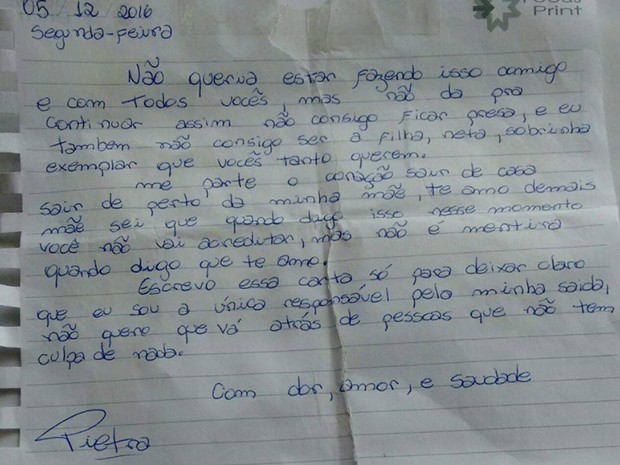 05 / 12 / 2016
Segunda-feira
Print
Não queria estar fazendo isso comigo
e com todos vocês, mas não da pra
continuar assim não consigo ficar presa, e eu
também não consigo ser a filha, neta, sobrinha
exemplar que vocês tanto querem.
me parte o coração sair de casa
sair de perto da minha mãe, te amo demais
mãe sei que quando digo isso nesse momento
você não vai acreditar, mas não é mentira
quando digo que te amo.
Escrevo essa carta só para deixar claro
que eu sou a única responsável pela minha saida,
não quero que vá atrás de pessoas que não tem
culpa de nada.
Com dor, amor, e saudade
Pietra